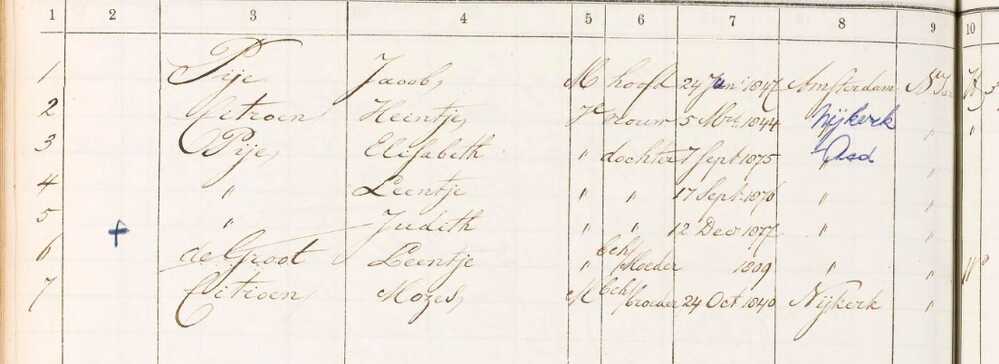 1 2 3 4 5 6 7 8 9 10
1 Pije Jacob, M hoofd 24 Juni 1847 Amsterdam N. Isr H 5
2 Citroen Heintje, V vrouw 5 Mrt 1844 Nijkerk " "
3 Pije, Elisabeth " dochter 7 Sept 1875 Asd "
4 " Leentje " " 17 Sept 1876 "
5 " Judith " " 12 Dec 1877 " "
6 de Groot Leentje " beh moeder 1809 " " W
7 Citroen, Mozes, M beh broeder 24 Oct 1840 Nijkerk "